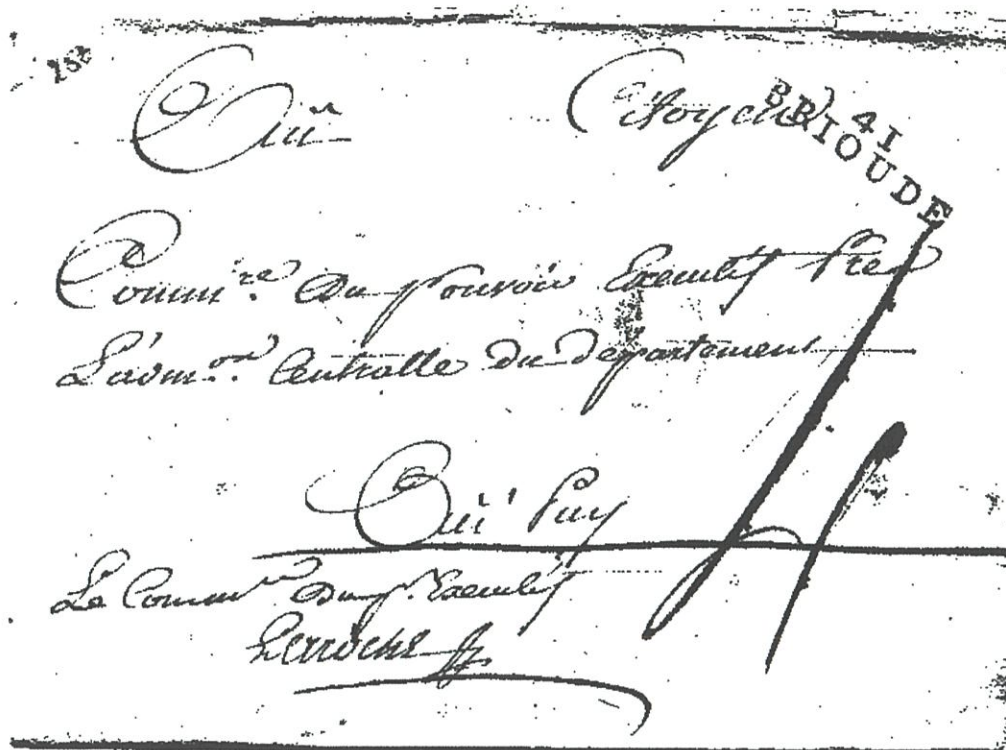 Au Citoyen
41
BRIOUDE
Comm.re du pouvoir Executif Pres
L'adm.on Centralle du departement
Au Puy
Le Comm.re du p. Executif